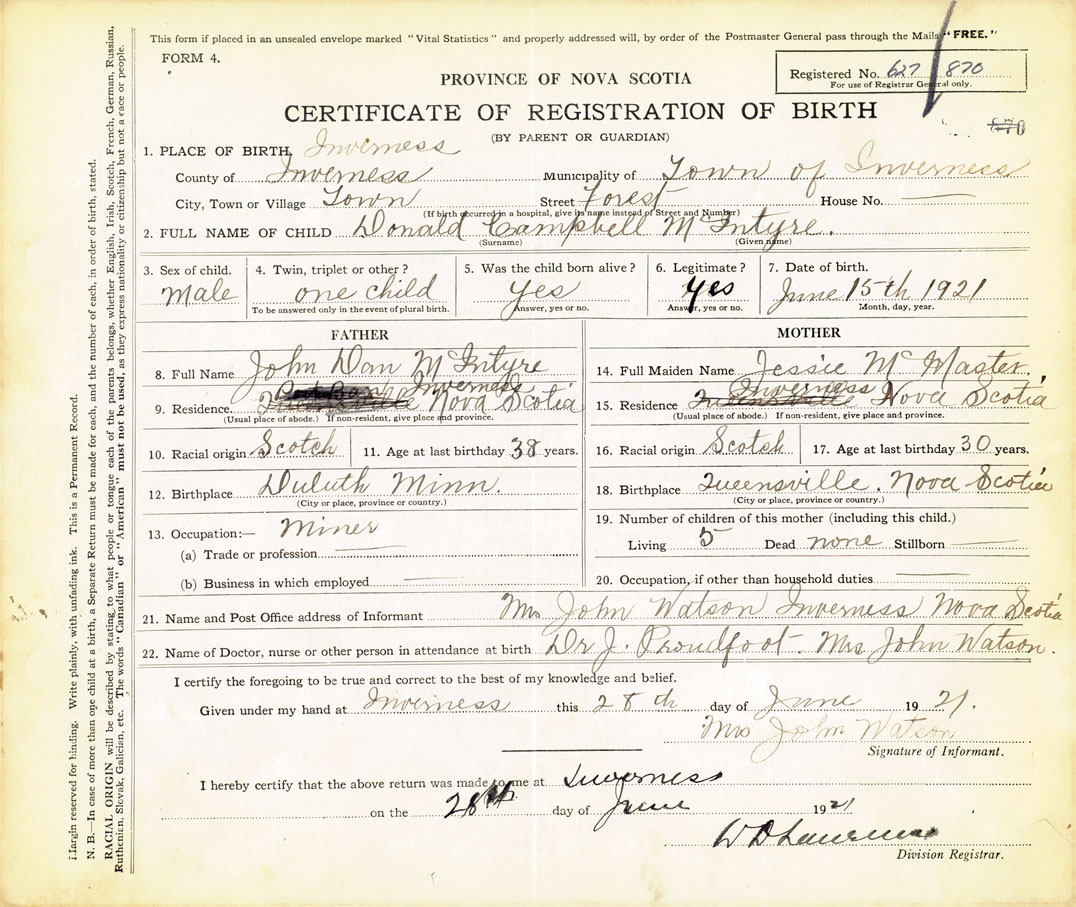 This form if placed in an unsealed envelope marked "Vital Statistics" and properly addressed will, by order of the Postmaster General pass through the Mails "FREE."
FORM 4.
Registered No. 627 870
For use of Registrar General only.
PROVINCE OF NOVA SCOTIA
CERTIFICATE OF REGISTRATION OF BIRTH
870
(BY PARENT OR GUARDIAN)
1. PLACE OF BIRTH, Inverness
County of Inverness Municipality of Town of Inverness
City, Town or Village Town Street Forest House No. —
(If birth occurred in a hospital, give its name instead of Street and Number)
2. FULL NAME OF CHILD Donald Campbell McIntyre.
(Surname) (Given name)
3. Sex of child. 4. Twin, triplet or other? 5. Was the child born alive? 6. Legitimate? 7. Date of birth.
Male one child yes yes June 15th 1921
To be answered only in the event of plural birth. Answer, yes or no. Answer, yes or no. Month, day, year.
FATHER
8. Full Name John Dan McIntyre
Inverness
9. Residence. Nova Scotia
(Usual place of abode.) If non-resident, give place and province.
10. Racial origin Scotch 11. Age at last birthday 38 years.
12. Birthplace Duluth Minn.
(City or place, province or country.)
13. Occupation:— Miner
(a) Trade or profession —
(b) Business in which employed —
MOTHER
14. Full Maiden Name Jessie McMaster.
Inverness
15. Residence Nova Scotia
(Usual place of abode.) If non-resident, give place and province.
16. Racial origin Scotch 17. Age at last birthday 30 years.
18. Birthplace Queensville. Nova Scotia
(City or place, province or country.)
19. Number of children of this mother (including this child.)
Living 5 Dead none Stillborn —
20. Occupation, if other than household duties —
21. Name and Post Office address of Informant Mrs John Watson Inverness Nova Scotia
22. Name of Doctor, nurse or other person in attendance at birth Dr J. Proudfoot. Mrs John Watson.
I certify the foregoing to be true and correct to the best of my knowledge and belief.
Given under my hand at Inverness this 28th day of June 1921.
Mrs John Watson
Signature of Informant.
I hereby certify that the above return was made to me at Inverness
on the 28th day of June 1921
W D Lawrence
Division Registrar.
Margin reserved for binding. Write plainly, with unfading ink. This is a Permanent Record.
N. B.—In case of more than one child at a birth, a Separate Return must be made for each, and the number of each, in order of birth, stated.
RACIAL ORIGIN will be described by stating to what people or tongue each of the parents belongs, whether English, Irish, Scotch, French, German, Russian,
Ruthenian, Slovak, Galician, etc. The words "Canadian" or "American" must not be used, as they express nationality or citizenship but not a race or people.